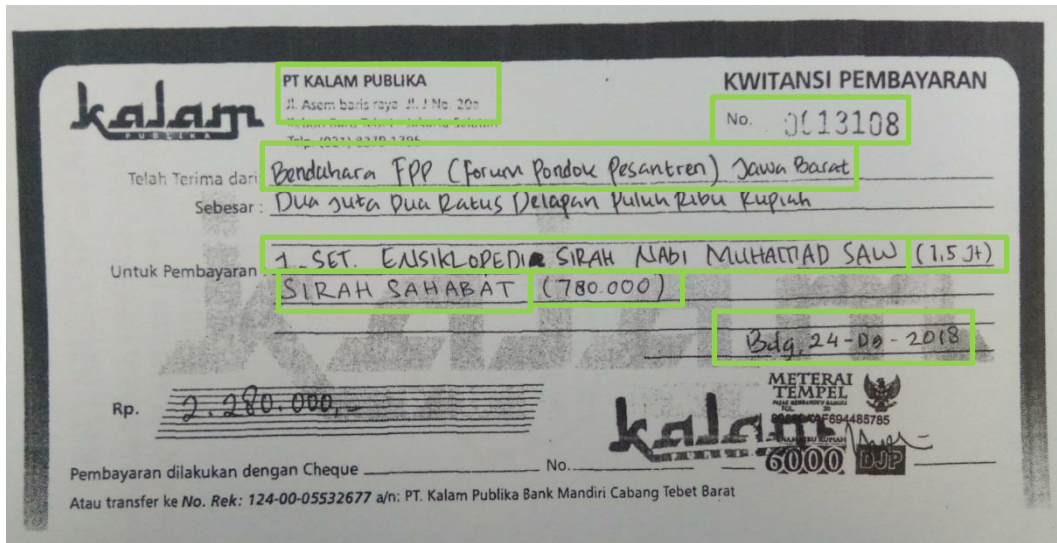 kalam
PUBLIKA
PT KALAM PUBLIKA
Jl. Asem baris raya Jl. J No. 20a
Telp. (021) 8370 1796
KWITANSI PEMBAYARAN
No. 0013108
Telah Terima dari: Bendahara FPP (Forum Pondok Pesantren) Jawa Barat
Sebesar : Dua Juta Dua Ratus Delapan Puluh Ribu Rupiah
Untuk Pembayaran : 1 SET. ENSIKLOPEDIA SIRAH NABI MUHAMMAD SAW (1,5 Jt)
SIRAH SAHABAT (780.000)
Bdg, 24-09-2018
Rp. 2.280.000,-
kalam
METERAI
TEMPEL
6000 DJP
Pembayaran dilakukan dengan Cheque No.
Atau transfer ke No. Rek: 124-00-05532677 a/n: PT. Kalam Publika Bank Mandiri Cabang Tebet Barat